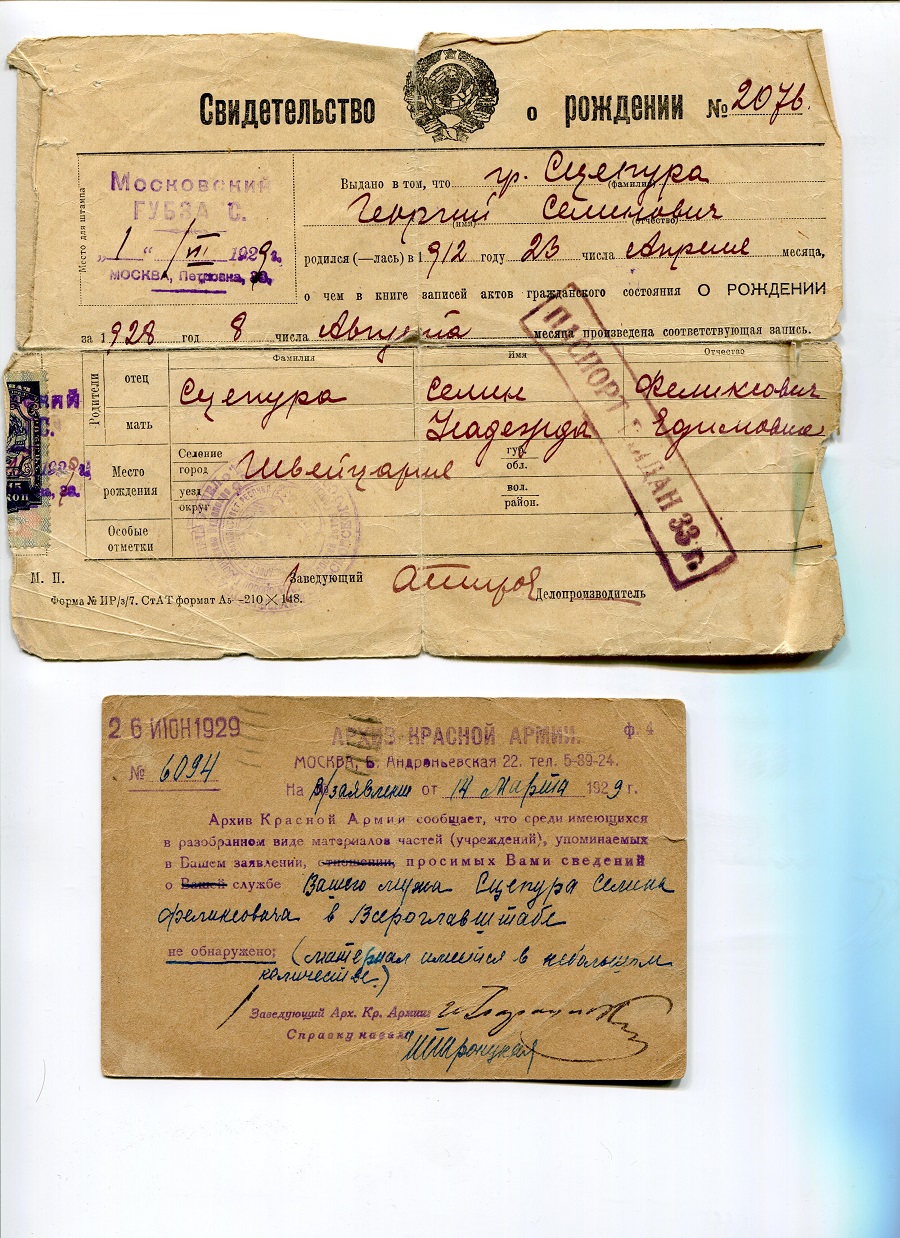 Свидетельство о рождении № 2076.
Место для штампа
Московский
ГУБЗАГС.
"1" VII 1929 г.
МОСКВА, Петровка, 38.
Выдано в том, что гр. Сцепура
(фамилия)
Георгий Семинович
(имя) (отчество)
родился (—лась) в 1912 году 23 числа Апреля месяца,
о чем в книге записей актов гражданского состояния О РОЖДЕНИИ
за 1928 год 8 числа Августа месяца произведена соответствующая запись.
Фамилия Имя Отчество
Родители
отец Сцепура Семин Феликсович
мать Надежда Ефимовна
Место рождения
Селение
город Швейцария
гур.
обл.
уезд
округ
вол.
район.
Особые отметки
ПАСПОРТ ВЫДАН 33 г.
15 КОП
М. П. Заведующий
Делопроизводитель
Форма № ИР/з/7. СтАТ формат А5 -210 × 148.
26 ИЮН 1929 АРХИВ КРАСНОЙ АРМИИ. ф. 4
№ 6094 МОСКВА, Б. Андроньевская 22. тел. 5-89-24.
На заявление от 14 Марта 1929 г.
Архив Красной Армии сообщает, что среди имеющихся
в разобранном виде материалов частей (учреждений), упоминаемых
в Вашем заявлении, отношении, просимых Вами сведений
о Вашей службе Вашего мужа Сцепура Семина
Феликсовича в Всероглавштабе
не обнаружено; (материал имеется в небольшом
количестве.)
Заведующий Арх. Кр. Армии
Справку навел